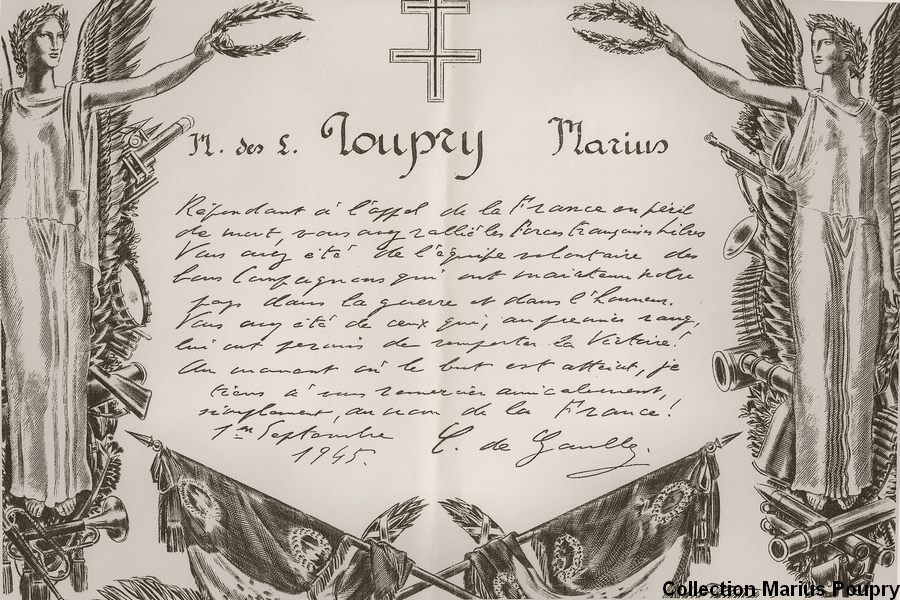 M. des L. Poupry Marius
Répondant à l'appel de la France en péril
de mort, vous avez rallié les Forces françaises Libres
Vous avez été de l'équipe volontaire des
bons Compagnons qui ont maintenu notre
pays dans la guerre et dans l'honneur.
Vous avez été de ceux qui, au premier rang,
lui ont permis de remporter la Victoire!
Au moment où le but est atteint, je
tiens à vous remercier amicalement,
simplement, au nom de la France!
1er Septembre
1945.
C. de Gaulle.
Collection Marius Poupry